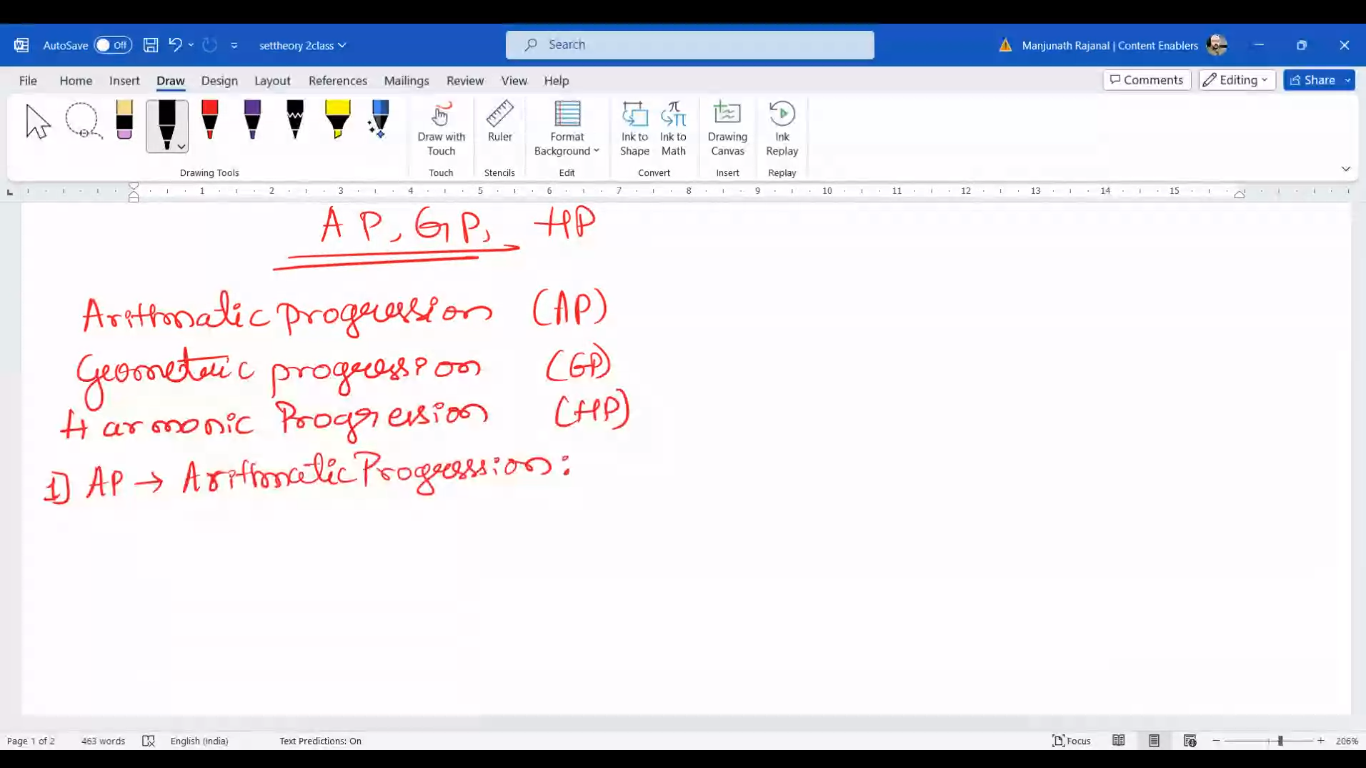 AutoSave Off settheory 2class Search Manjunath Rajanal | Content Enablers
File Home Insert Draw Design Layout References Mailings Review View Help Comments Editing Share
Draw with Touch Ruler Format Background Ink to Shape Ink to Math Drawing Canvas Ink Replay
Drawing Tools Touch Stencils Edit Convert Insert Replay
1 2 3 4 5 6 7 8 9 10 11 12 13 14 15
AP, GP, HP
Arithmatic progression (AP)
Geometric progression (GP)
Harmonic Progression (HP)
1] AP → Arithmatic Progression:
Page 1 of 2 463 words English (India) Text Predictions: On Focus 206%